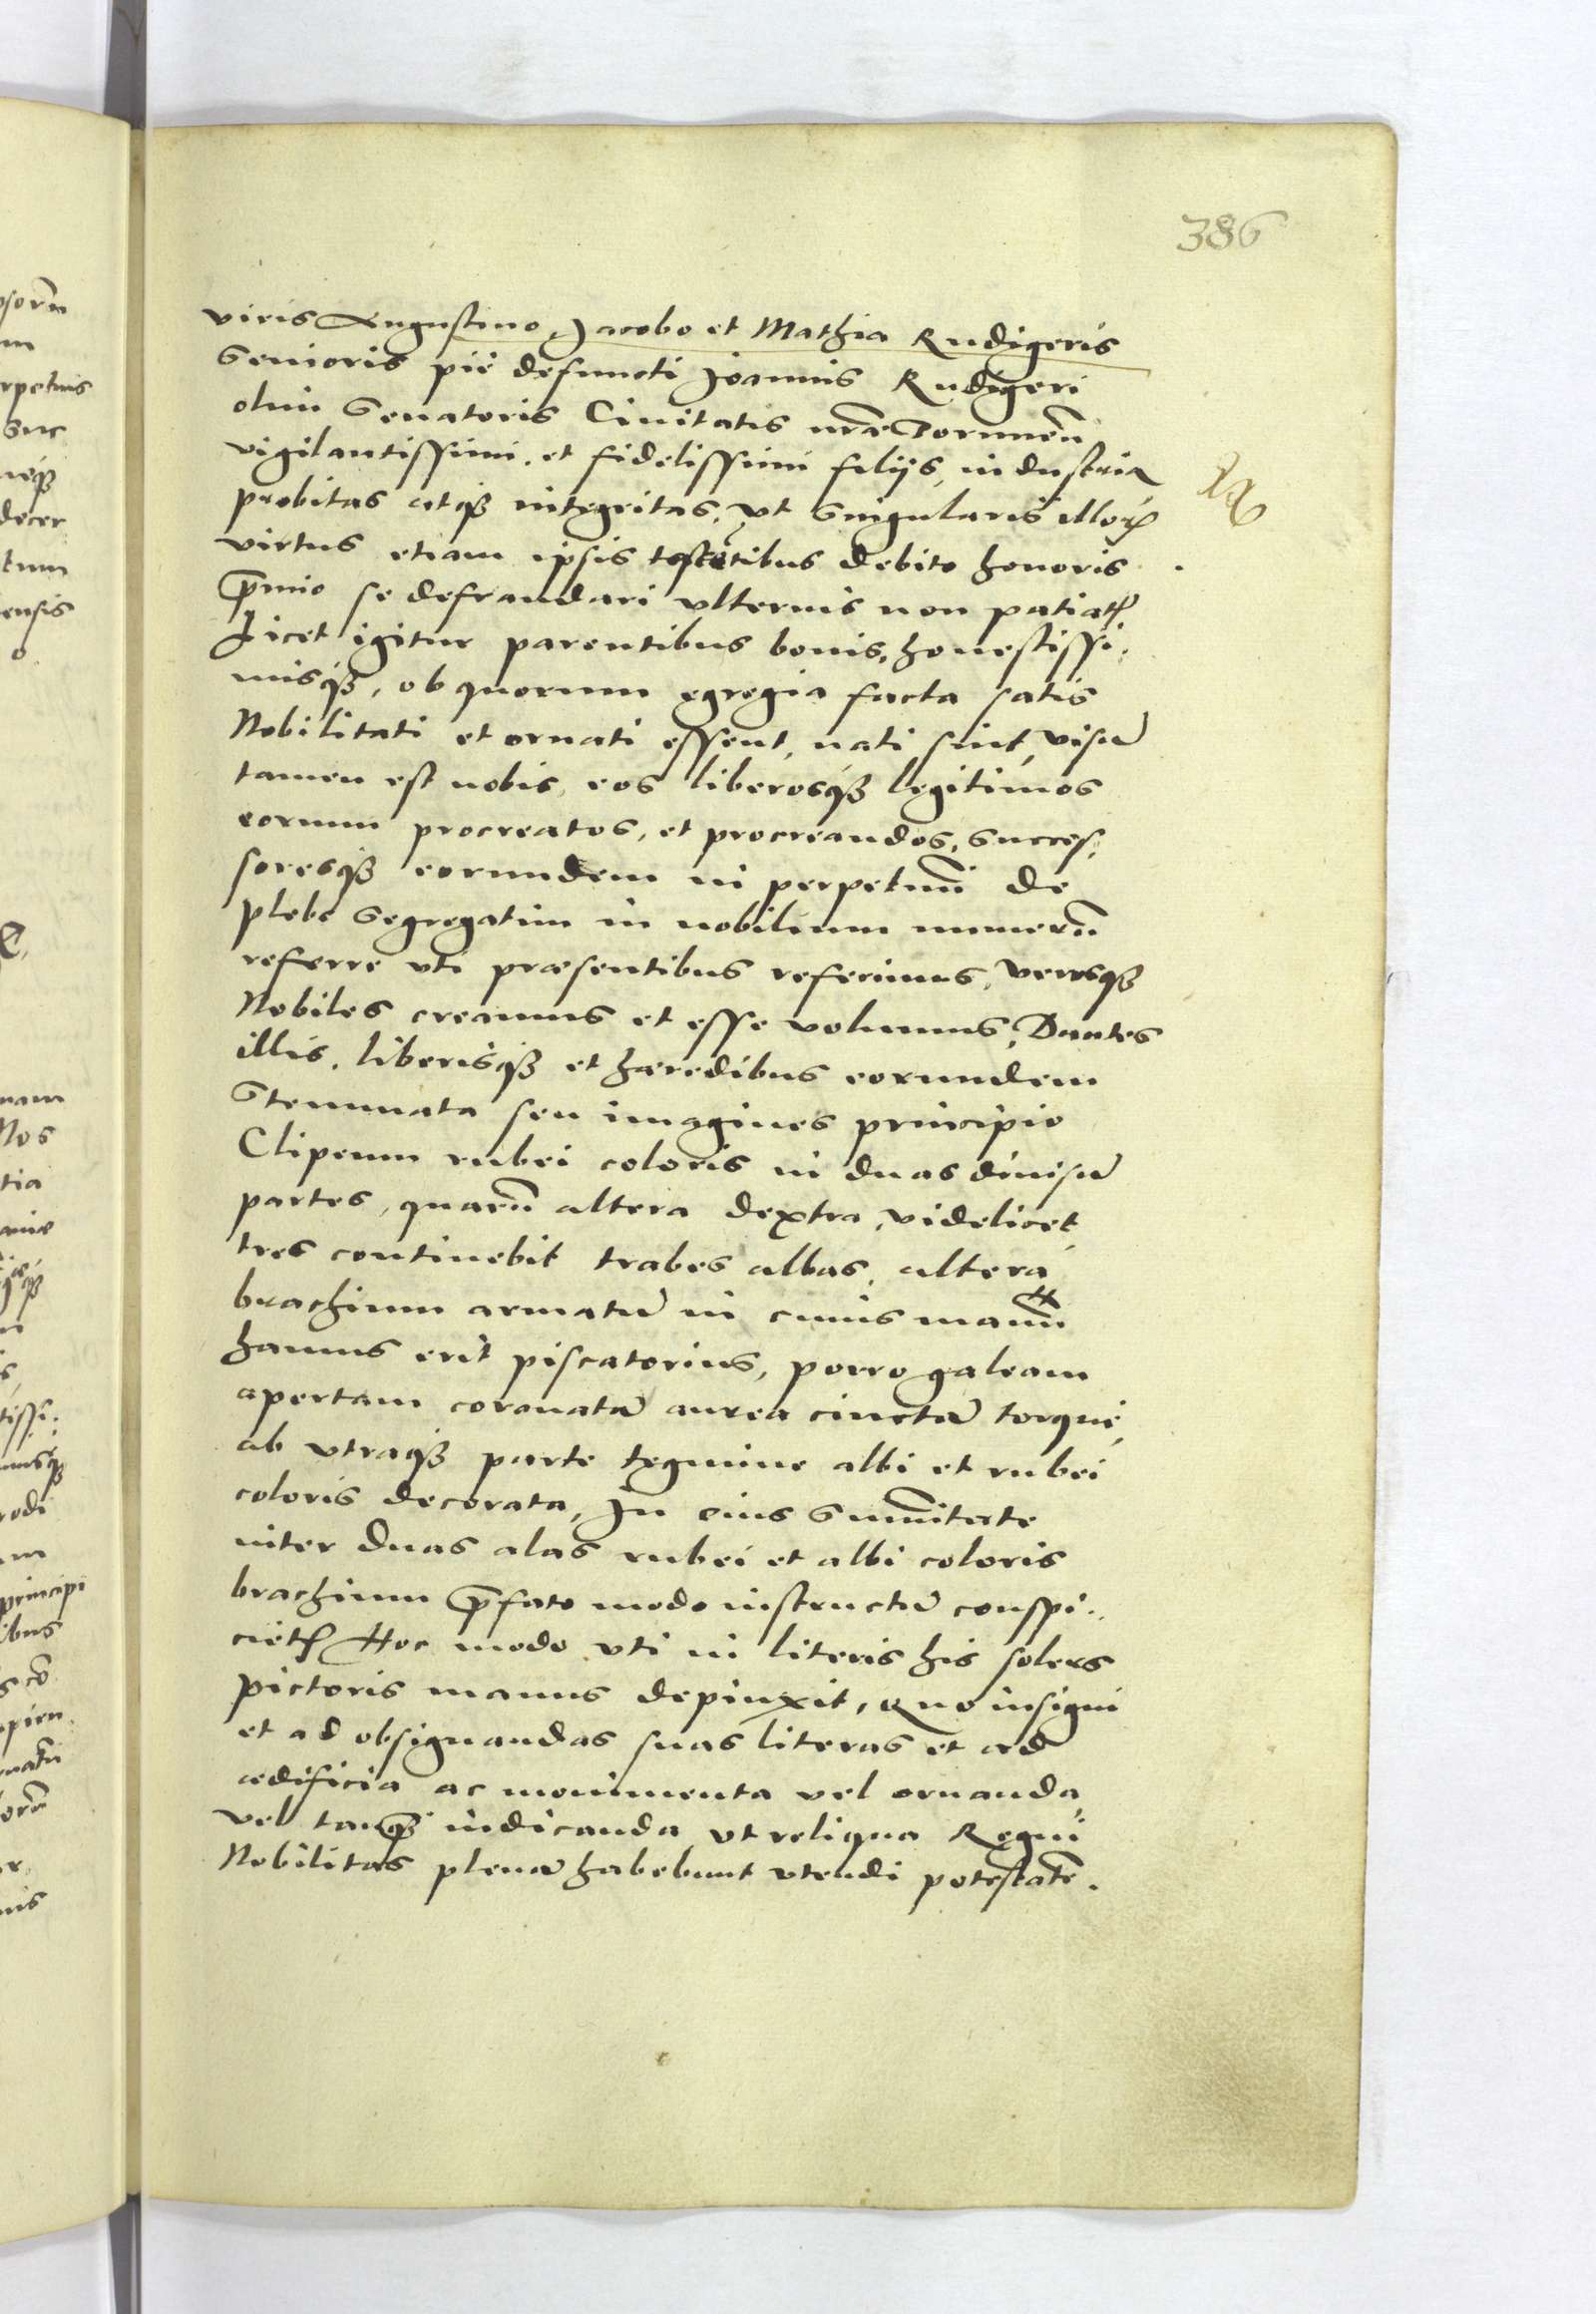 386
viris Augustino, Jacobo et Mathia Rudigeris
Senioris pie defuncti Joannis Rudigeri
olim Senatoris Ciuitatis nr̃ae Torunen̄
vigilantissimi, et fidelissimi filijs, industria
probitas atqꝫ integritas, vt singularis illorꝝ
virtus etiam ipsis debito honoris
p̄mio se defraudari vlterius non patiat͛.
Licet igitur parentibus bonis, honestissi:
misqꝫ, ob quorum egregia facta satis
Nobilitati et ornati essent, nati sint, visū
tamen est nobis, eos liberosqꝫ legitimos
eorum procreatos, et procreandos, succes:
soresqꝫ eorundem in perpetuū de
plebe segregatim in nobilium numerū
referre vti præsentibus referimus, verosqꝫ
Nobiles creamus et esse volumus, Dantes
illis, liberisqꝫ et hæredibus eorundem
Stemmata seu imagines principio
Clipeum rubei coloris in duas diuisū
partes, quarū altera dextra, videlicet
tres continebit trabes albas, altera
brachium armatū in cuius manu
hamus erit piscatorius, porro galeam
apertam coronatā aurea cinctā torque,
ab vtraqꝫ parte tegmine albi et rubei
coloris decorata, In eius sum̄itate
inter duas alas rubei et albi coloris
brachium p̄fato modo instructū conspi:
ciet͛ Hoc modo vti in literis his solers
pictoris manus depinxit, Quo insigni
et ad obsignandas suas literas et ad
ædificia ac monimenta vel ornanda,
vel tanqꝫ indicanda vt reliqua Regni
Nobilitas plenā habebunt vtendi potestatē.